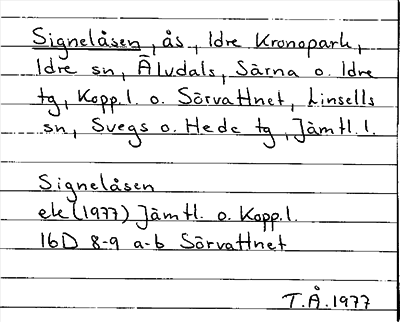 Signelåsen, ås, Idre Kronopark,
Idre sn, Älvdals, Särna o. Idre
tg, Kopp.l. o. Sörvattnet, Linsells
sn, Svegs o. Hede tg, Jämtl.l.
Signelåsen
ek (1977) Jämtl. o. Kopp.l.
16D 8-9 a-b Sörvattnet
T.Å.1977